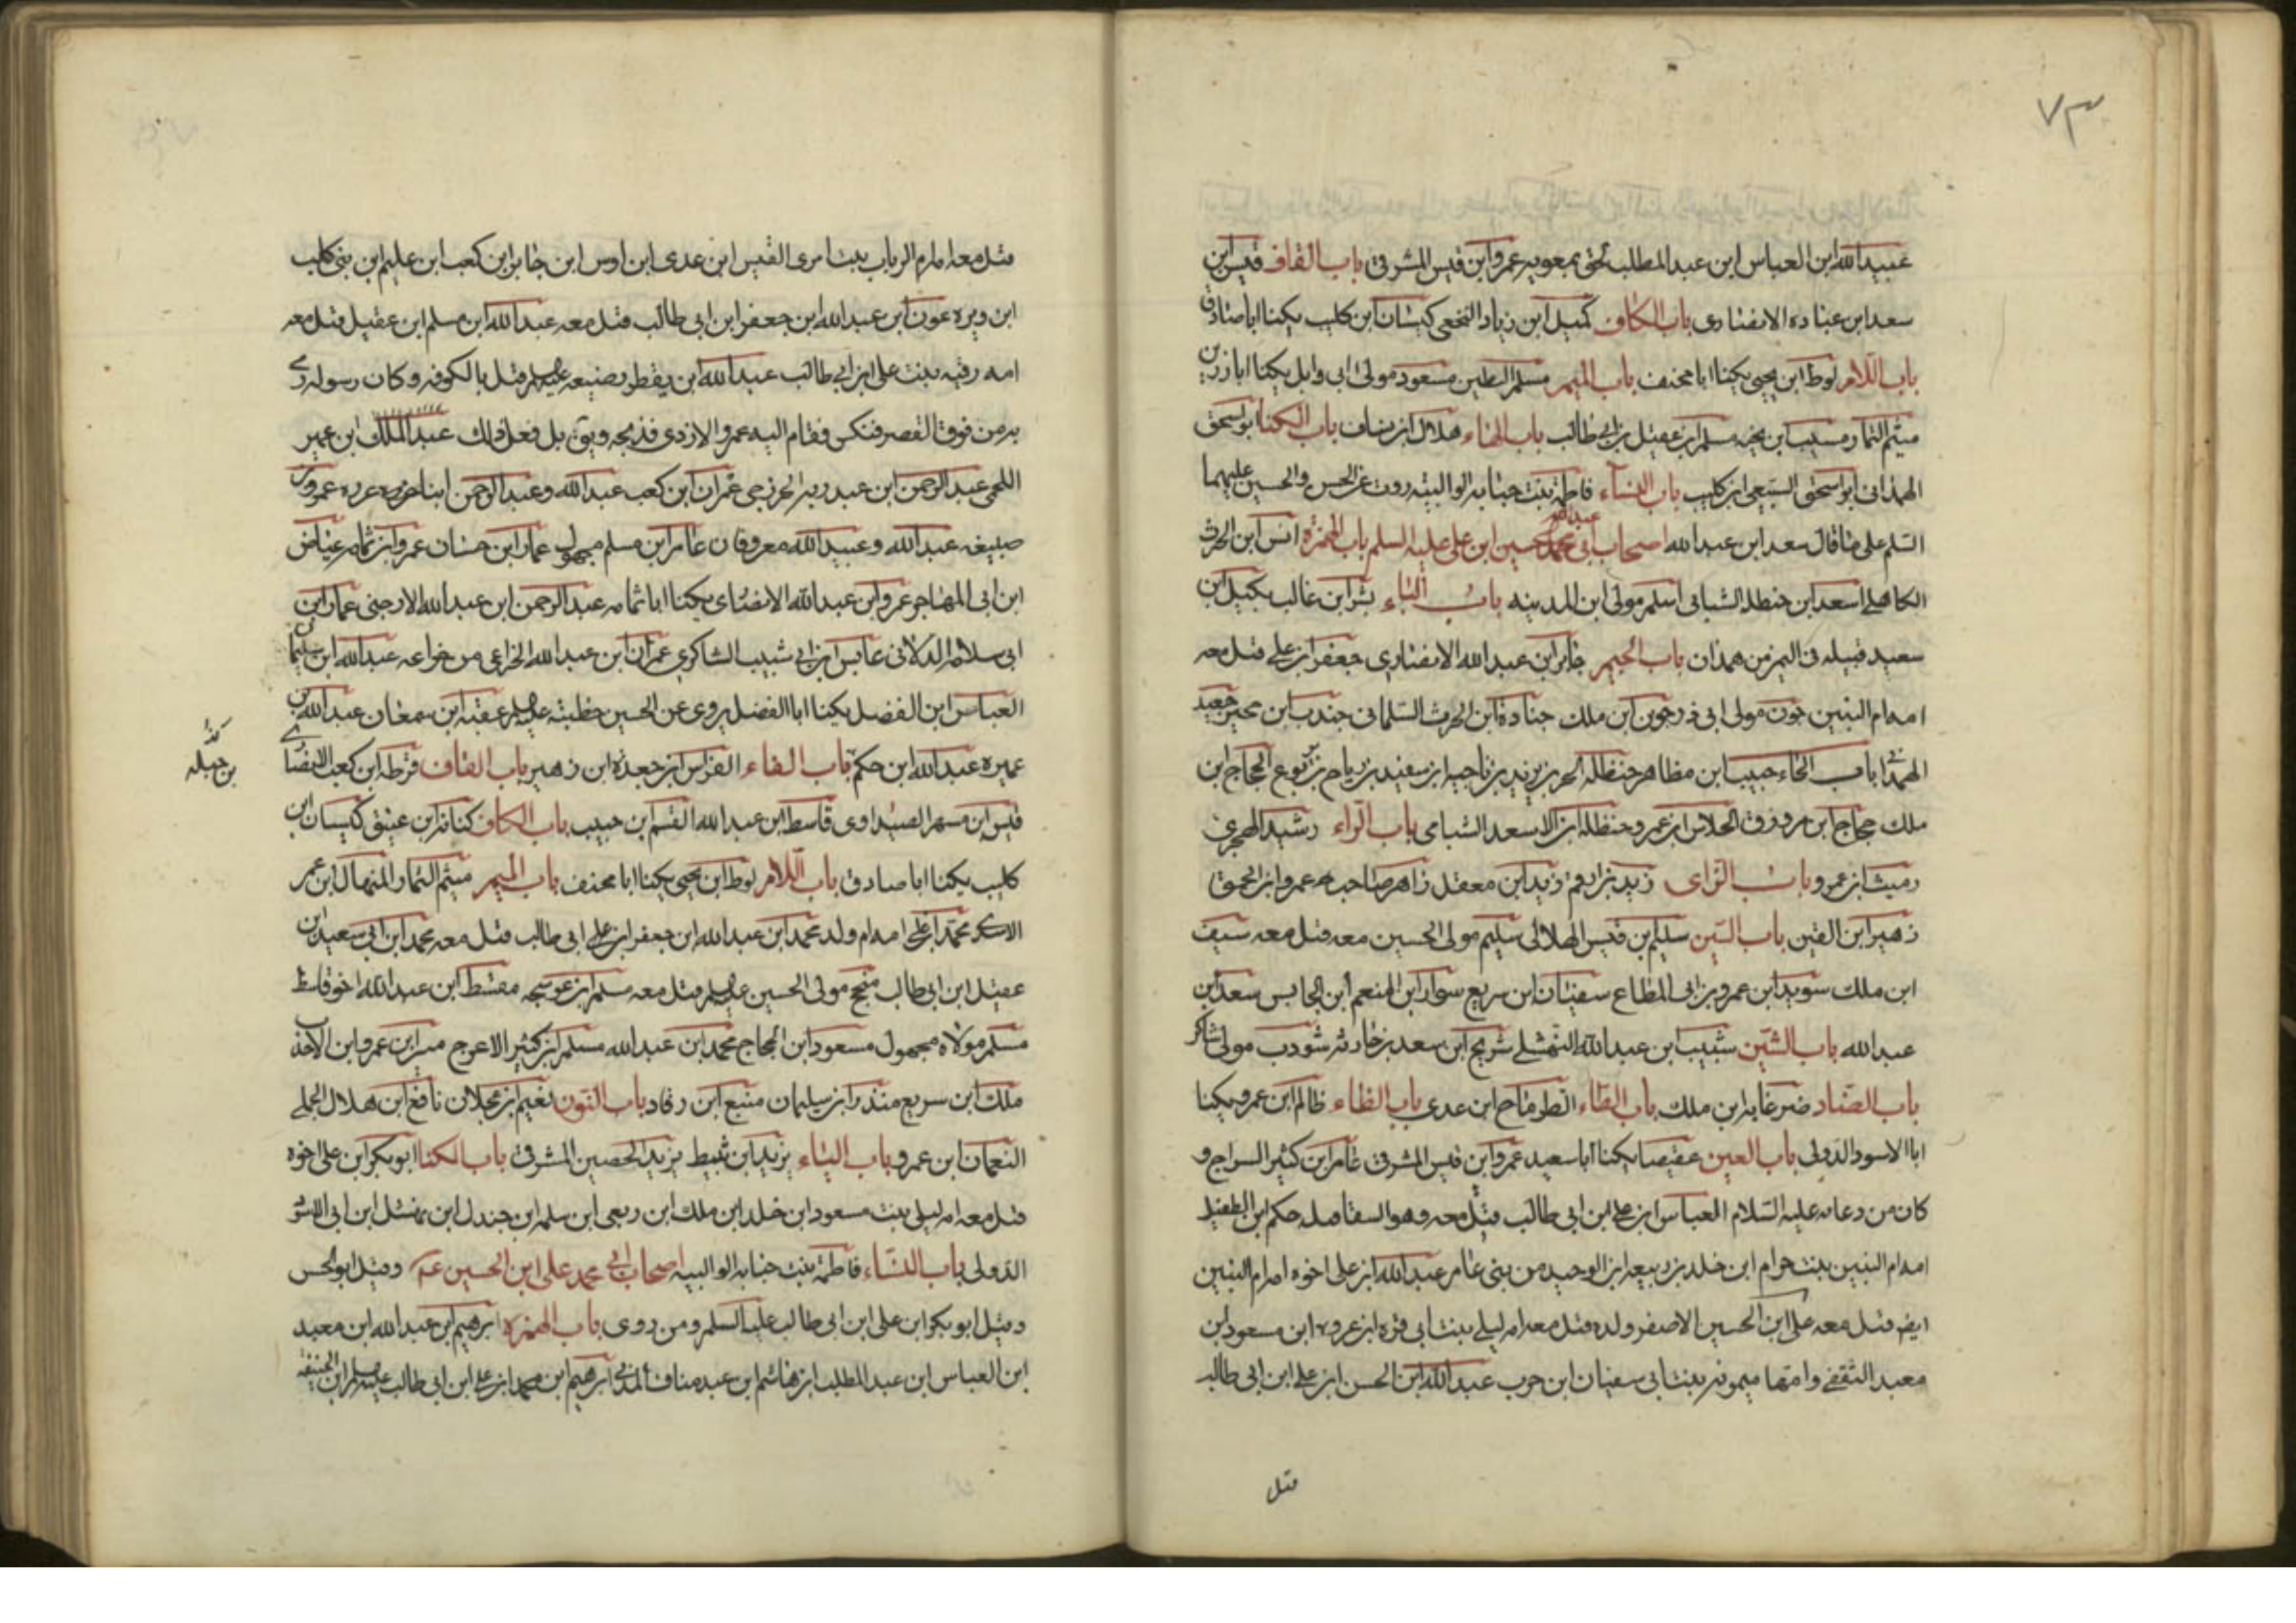 ٧٣
عبيدالله ابن العباس ابن عبد المطلب لحق بمعويه عمرو ابن قيس المشرقى باب القاف قيس ابن
سعد ابن عباده الانصارى باب الكاف كميل ابن زياد النخعى كيسان ابن كليب يكنا اباصادق
باب اللام لوط ابن يحيى يكنا ابا مخنف باب الميم مسلم البطين مسعود مولى ابى وايل يكنا ابا رزين
ميثم التمار مسيب ابن نجبه مسلم ابن عقيل بن ابى طالب باب الهاء هلال ابن يساف باب الكنا ابو اسحق
الهمدانى ابو اسحق السبيعى ابن كليب باب النساء فاطمة بنت حبابه الوالبيه روت عن الحسن والحسين عليهما
السلم على ما قال سعد ابن عبد الله اصحاب ابى عبدالله حسين ابن على عليه السلم باب الهمزة انس ابن الحرث
الكاهلى اسعد ابن حنظله الشبامى اسلم مولى ابن المدينه باب الباء بشر ابن غالب بكيل ابن
سعيد قبيله فى اليمن من همدان باب الجيم جابر ابن عبد الله الانصارى جعفر ابن على قتل معه
امه ام البنين جون مولى ابى ذر جوين ابن ملك جنادة ابن الحرث السلمانى جندب ابن حجير جعيد
الهمدانى باب الحاء حبيب ابن مظاهر حنظله الحر بن يزيد بن ناجيه ابن سعيد بن رياح بن يربوع الحجاج ابن
ملك حجاج ابن مرزوق الحلاس ابن عمرو حنظله ابن الاسعد الشبامى باب الراء رشيد الهجرى
رميث ابن عمرو باب الزاى زيد بن ارقم زيد ابن معقل زاهر صاحب عمرو ابن الحمق
زهير ابن القين باب السين سليم بن قيس الهلالى سليم مولى الحسين معه قتل معه سيف
ابن ملك سويد ابن عمرو بن ابى المطاع سفيان ابن سريع سوار ابن المنعم ابن الحابس سعد ابن
عبد الله باب الشين شبيب ابن عبد الله النهشلى شريح ابن سعد بن حارثه شوذب مولى شاكر
باب الضاد ضرغامه ابن ملك باب الطاء الطرماح ابن عدى باب الظاء ظالم ابن عمرو يكنا
ابا الاسود الدولى باب العين عقيصا يكنا ابا سعيد عمرو ابن قيس المشرقى عامر ابن كثير السراج و
كان من دعاته عليه السلام العباس ابن على ابن ابى طالب قتل معه وهو السقا قتله حكم ابن الطفيل
امه ام البنين بنت حرام ابن خلد بن ربيعه ابن الوحيد من بنى عامر عبد الله ابن على اخوه امه ام البنين
ايضه قتل معه على ابن الحسين الاصغر ولده قتل معه امه ليلى بنت ابى قره ابن عروه ابن مسعود ابن
معبد الثقفى وامها ميمونه بنت ابى سفيان ابن حرب عبد الله ابن الحسن ابن على ابن ابى طالب
قتل
قتل معه امه الرباب بنت امرى القيس ابن عدى ابن اوس ابن جابر ابن كعب ابن عليم ابن بنى كلب
ابن وبره عون ابن عبد الله ابن جعفر ابن ابى طالب قتل معه عبد الله ابن مسلم ابن عقيل قتل معه
امه رقيه بنت على ابن ابى طالب عبد الله ابن يقطر رضيعه قتل بالكوفه وكان رسوله رمى
به من فوق القصر فتكسر فقام اليه عمرو الازدى فذبحه ويق بل فعل ذلك عبد الملك ابن عمير
اللخمى عبد الرحمن ابن عبد ربه الخزرجى عمران ابن كعب عبد الله وعبد الرحمن ابنا عزره عمرو ابن
ضبيعه عبد الله وعبيد الله معروفان عامر ابن مسلم مجهول عمار ابن حسان عمرو ابن ثمامه عياض
ابن ابى المهاجر عمرو ابن عبد الله الانصارى يكنا ابا ثمامه عبد الرحمن ابن عبد الله الارحبى عمار ابن
ابى سلامه الدلانى عابس ابن ابى شبيب الشاكرى عمران ابن عبد الله الخزاعى من خزاعه عبد الله ابن سليمان
العباس ابن الفضل يكنا ابا الفضل يروى عن الحسين خطبته عقبه ابن سمعان عبد الله ابن
عميره عبد الله ابن حكم باب الفاء الفراس ابن جعدة ابن زهير باب القاف قرظه ابن كعب الانصارى
قيس ابن مسهر الصيداوى قاسط ابن عبد الله القسم ابن حبيب باب الكاف كنانه ابن عتيق كيسان ابن
كليب يكنا ابا صادق باب اللام لوط ابن يحيى يكنا ابا مخنف باب الميم ميثم التمار المنهال ابن عمر
الاسدى محمد ابن على امه ام ولد محمد ابن عبد الله ابن جعفر ابن على ابى طالب قتل معه محمد ابن ابى سعيد ابن
عقيل ابن ابى طالب منجح مولى الحسين قتل معه مسلم ابن عوسجه مقسط ابن عبد الله اخو قاسط
مسلم مولاه مجهول مسعود ابن الحجاج محمد ابن عبد الله مسلم ابن كثير الاعرج ابن عمرو ابن الاحدب
ملك ابن سريع منذر ابن سليمان منيع ابن رقاد باب النون نعيم ابن عجلان نافع ابن هلال الجملى
النعمان ابن عمرو باب الياء يزيد ابن ثبيط يزيد الحصين المشرقى باب الكنا ابو بكر ابن على اخوه
قتل معه امه ليلى بنت مسعود ابن خلد ابن ملك ابن ربعى ابن سلمه ابن جندل ابن نهشل ابن ابى الاسود
الدولى باب النساء فاطمة بنت حبابه الوالبيه اصحاب ابى محمد على ابن الحسين وقيل ابو الحسن
وقيل ابو بكر ابن على ابن ابى طالب عليه السلم ومن روى باب الهمزه ابرهيم ابن عبد الله ابن معبد
ابن العباس ابن عبد المطلب ابن هاشم ابن عبد مناف المدنى ابرهيم ابن محمد ابن على ابن ابى طالب ابن الحنفيه
بن جبله